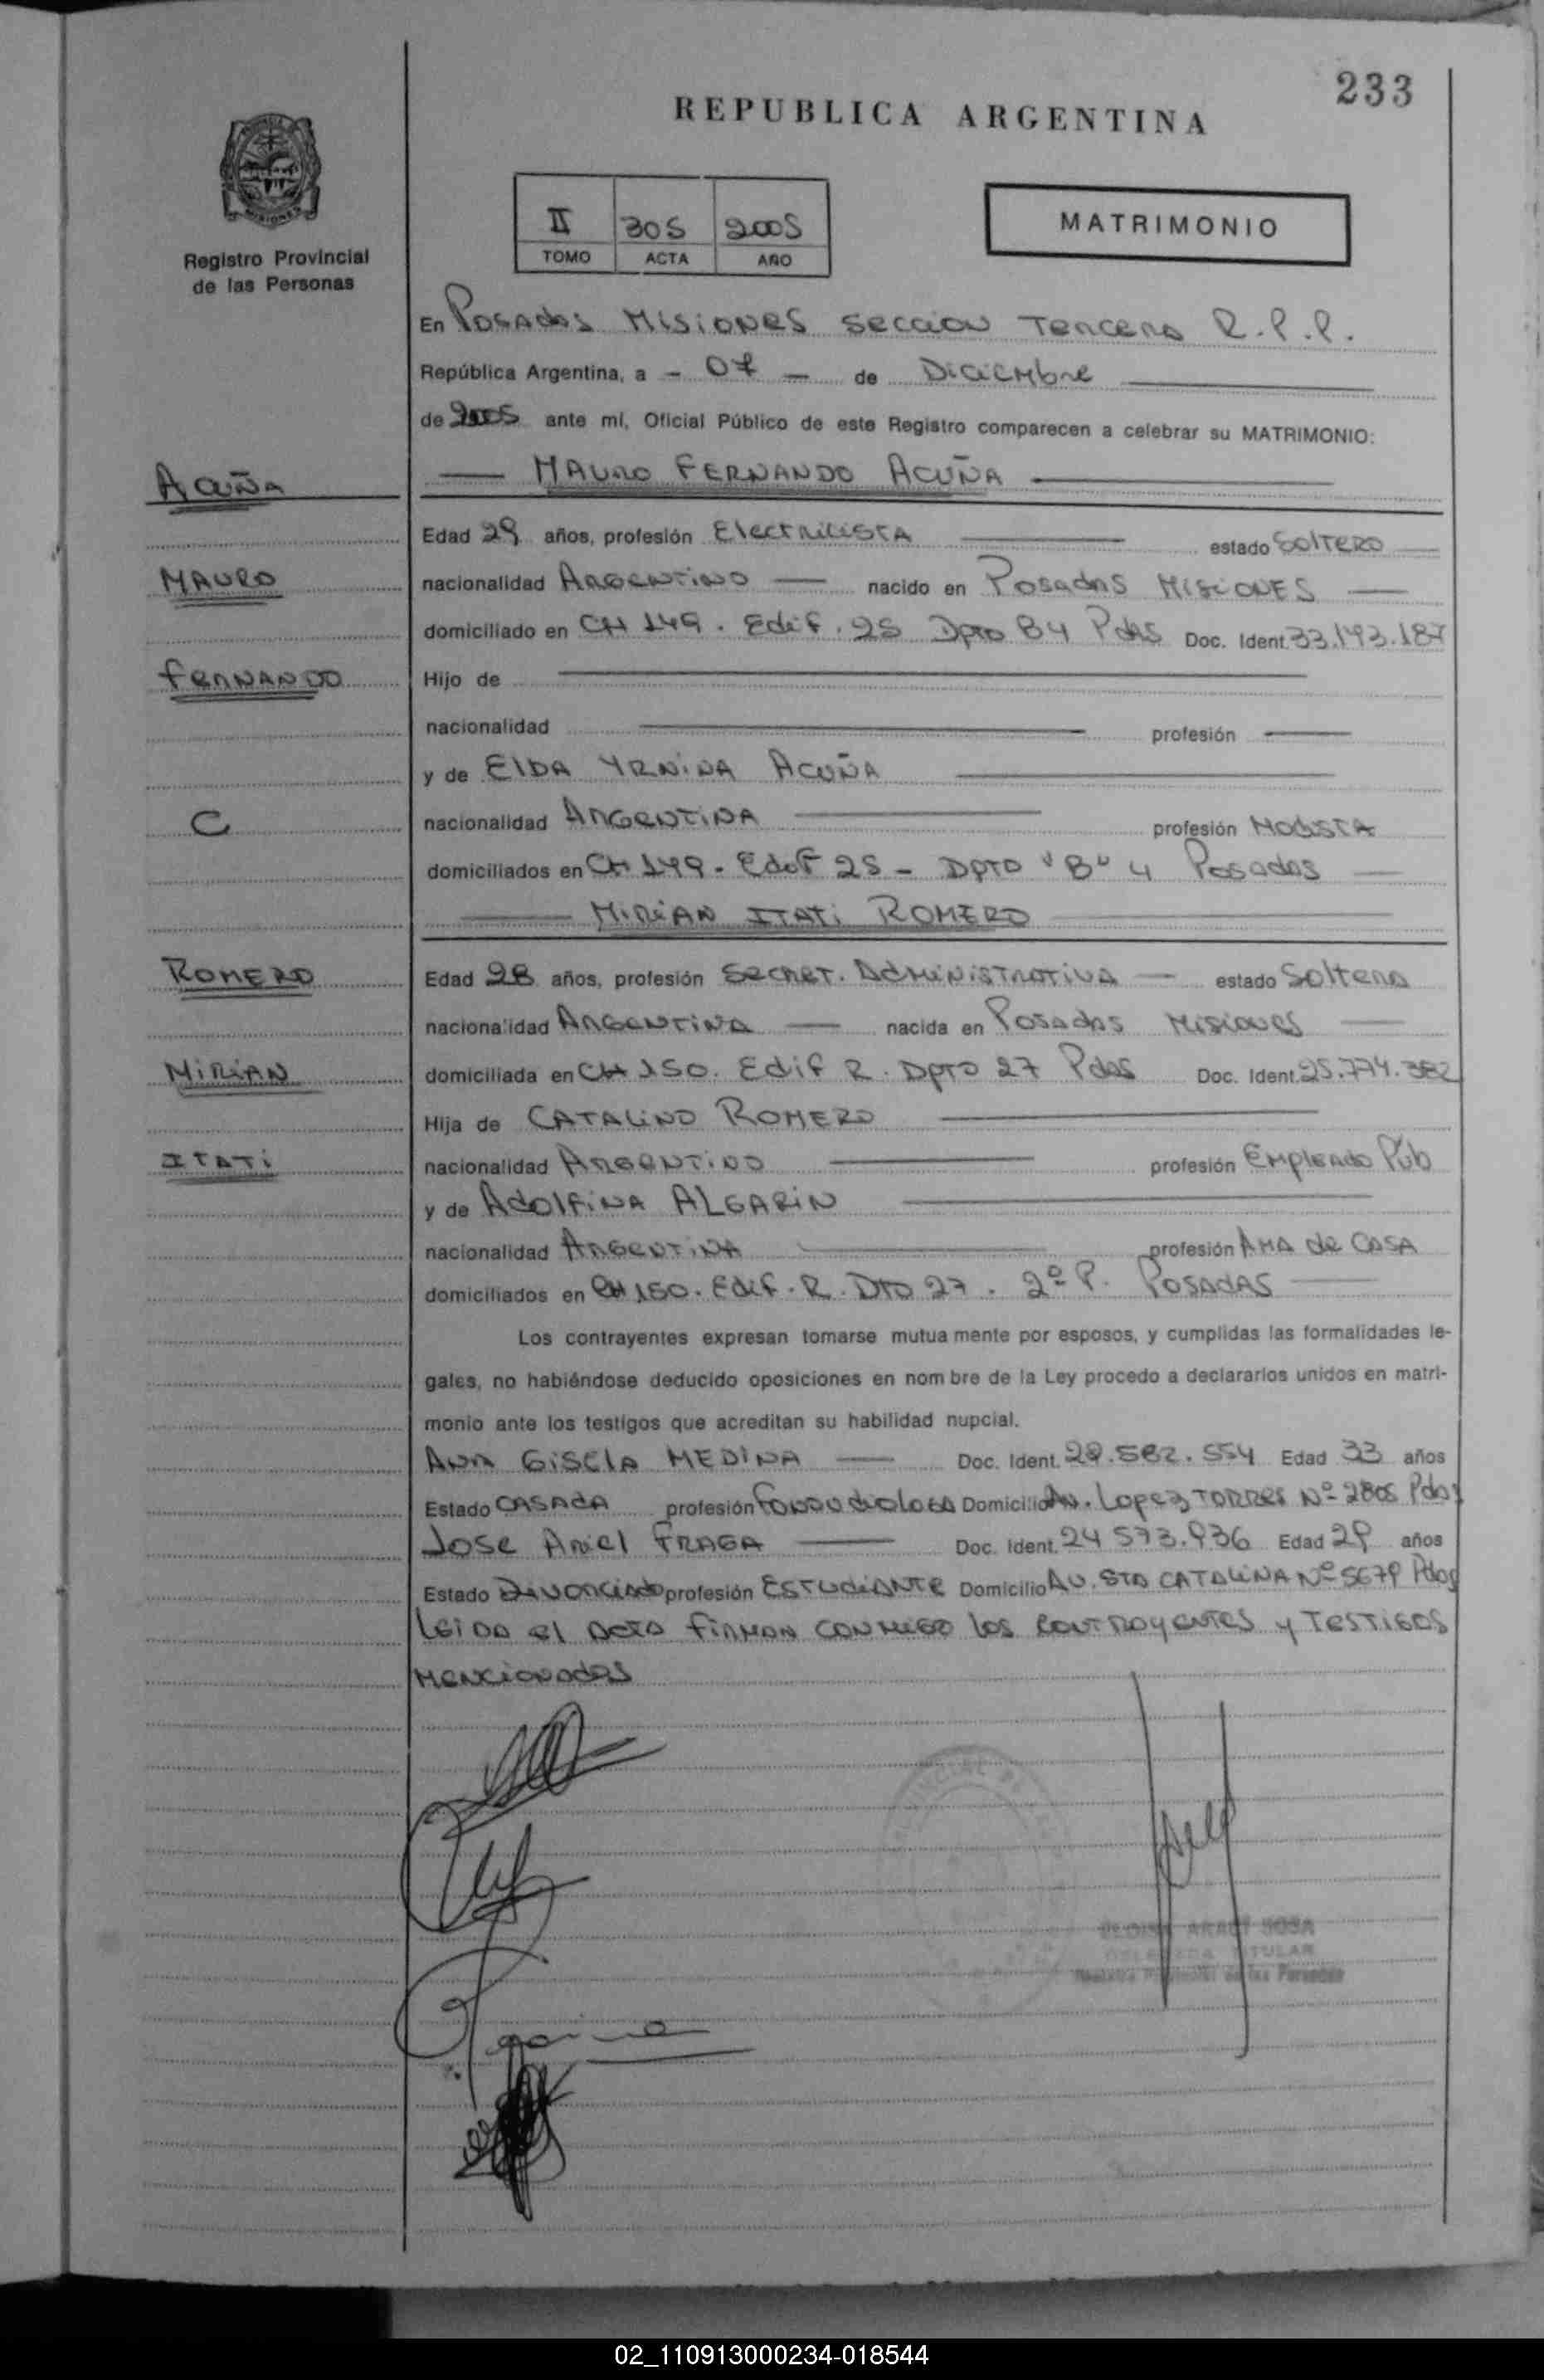 233
REPUBLICA ARGENTINA
MISIONES
Registro Provincial
de las Personas
II 305 2005
TOMO ACTA AÑO
MATRIMONIO
En Posadas Misiones seccion Tercera R.P.P.
República Argentina, a - 07 - de Diciembre
de 2005 ante mí, Oficial Público de este Registro comparecen a celebrar su MATRIMONIO:
Acuña
Mauro Fernando Acuña
Edad 29 años, profesión Electricista estado Soltero
Mauro
nacionalidad Argentino nacido en Posadas Misiones
domiciliado en CH 149. Edif. 25 Dpto B4 Pdas Doc. Ident. 33.193.187
Fernando
Hijo de
nacionalidad profesión
y de Elda Yrnina Acuña
C
nacionalidad Argentina profesión Modista
domiciliados en CH 149. Edif 25 - Dpto "B" 4 Posadas
Mirian Itati Romero
Romero
Edad 28 años, profesión Secret. Administrativa estado Soltera
nacionalidad Argentina nacida en Posadas Misiones
Mirian
domiciliada en CH 150. Edif R. Dpto 27 Pdas Doc. Ident. 25.774.382
Hija de Catalino Romero
Itati
nacionalidad Argentino profesión Empleado Púb
y de Adolfina Algarin
nacionalidad Argentina profesión Ama de Casa
domiciliados en CH 150. Edif. R. Dto 27. 2º P. Posadas
Los contrayentes expresan tomarse mutua mente por esposos, y cumplidas las formalidades le-
gales, no habiéndose deducido oposiciones en nom bre de la Ley procedo a declararlos unidos en matri-
monio ante los testigos que acreditan su habilidad nupcial.
Ana Gisela Medina Doc. Ident. 28.582.554 Edad 33 años
Estado Casada profesión Domicilio Av. Lopez Torres Nº 2805 Pdas
Jose Ariel Fraga Doc. Ident. 24 573.936 Edad 29 años
Estado Divorciado profesión Estudiante Domicilio Av. Sta Catalina Nº 5679 Pdas
Leida el acta firman conmigo los contrayentes y testigos
mencionados
SOSA
TITULAR
de las Personas
02_110913000234-018544